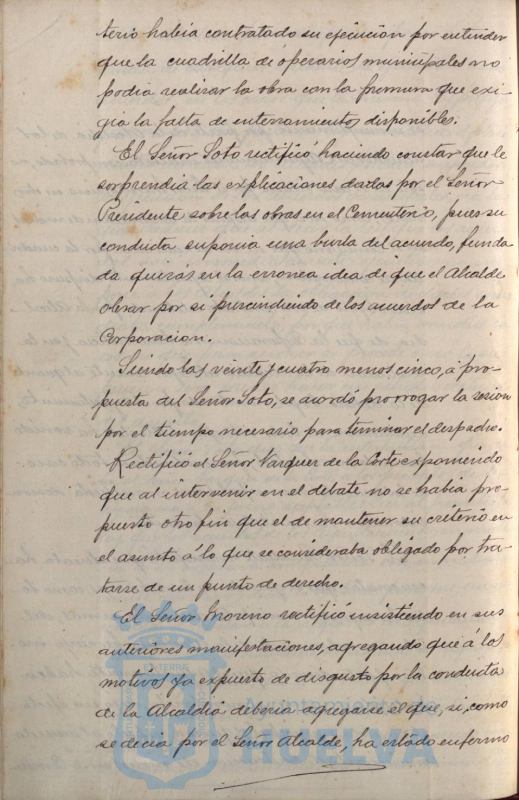 terio habia contratado su ejecucion por entender
que la cuadrilla de operarios municipales no
podia realizar la obra con la premura que exi-
gia la falta de enterramientos disponibles.
El Señor Soto rectificó haciendo constar que le
sorprendia las explicaciones dadas por el Señor
Presidente sobre las obras en el Cementerio, pues su
conducta suponia una burla del acuerdo, funda
da quizás en la erronea idea de que el Alcalde
obrar por si prescindiendo de los acuerdos de la
Corporacion.
Siendo las veinte y cuatro menos cinco, á pro-
puesta del Señor Soto, se acordó prorrogar la sesion
por el tiempo necesario para terminar el despacho.
Rectificó el Señor Vazquez de la Corte exponiendo
que al intervenir en el debate no se habia pro
puesto otro fin que el de mantener su criterio en
el asunto á lo que se consideraba obligado por tra-
tarse de un punto de derecho.
El Señor Moreno rectificó insistiendo en sus
anteriores manifestaciones, agregando que á los
motivos ya expuesto de disgusto por la conducta
de la Alcaldia deberia agregarse el que, si, como
se decia por el Señor Alcalde, ha estado enfermo
HUELVA